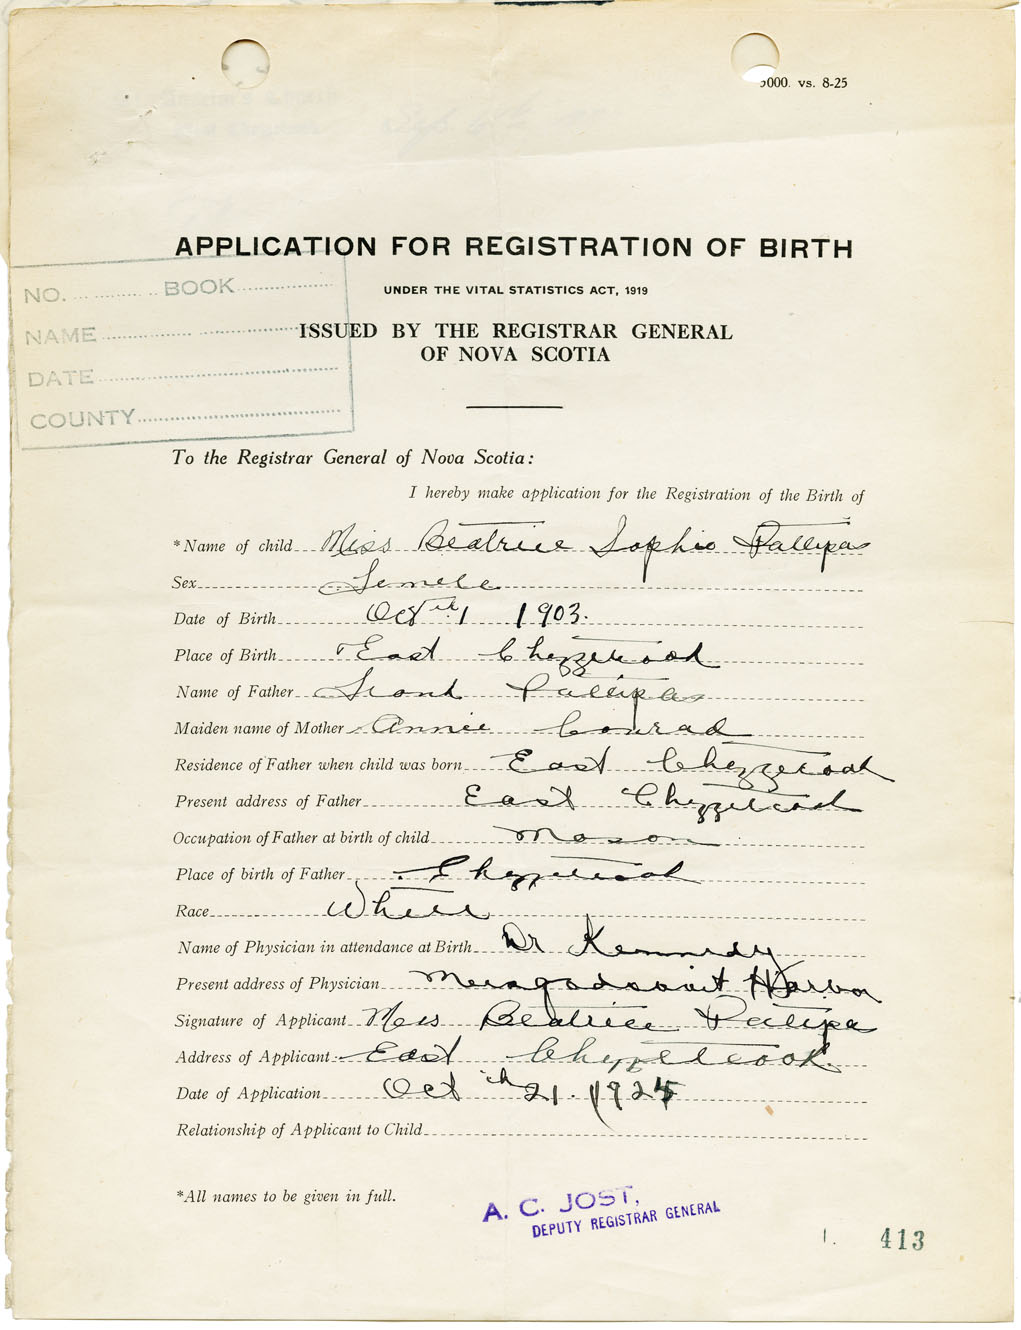 5000. vs. 8-25
APPLICATION FOR REGISTRATION OF BIRTH
UNDER THE VITAL STATISTICS ACT, 1919
ISSUED BY THE REGISTRAR GENERAL
OF NOVA SCOTIA
NO. BOOK
NAME
DATE
COUNTY
To the Registrar General of Nova Scotia:
I hereby make application for the Registration of the Birth of
*Name of child Miss Beatrice Sophia Pettipas
Sex Female
Date of Birth Oct 1 1903.
Place of Birth East Chezzetcook
Name of Father Frank Pettipas
Maiden name of Mother Annie Conrad
Residence of Father when child was born East Chezzetcook
Present address of Father East Chezzetcook
Occupation of Father at birth of child Mason
Place of birth of Father Chezzetcook
Race White
Name of Physician in attendance at Birth Dr Kennedy
Present address of Physician Harbor
Signature of Applicant Miss Beatrice Pettipas
Address of Applicant East Chezzetcook.
Date of Application Oct 21. 1925
Relationship of Applicant to Child
*All names to be given in full.
A. C. JOST,
DEPUTY REGISTRAR GENERAL
413